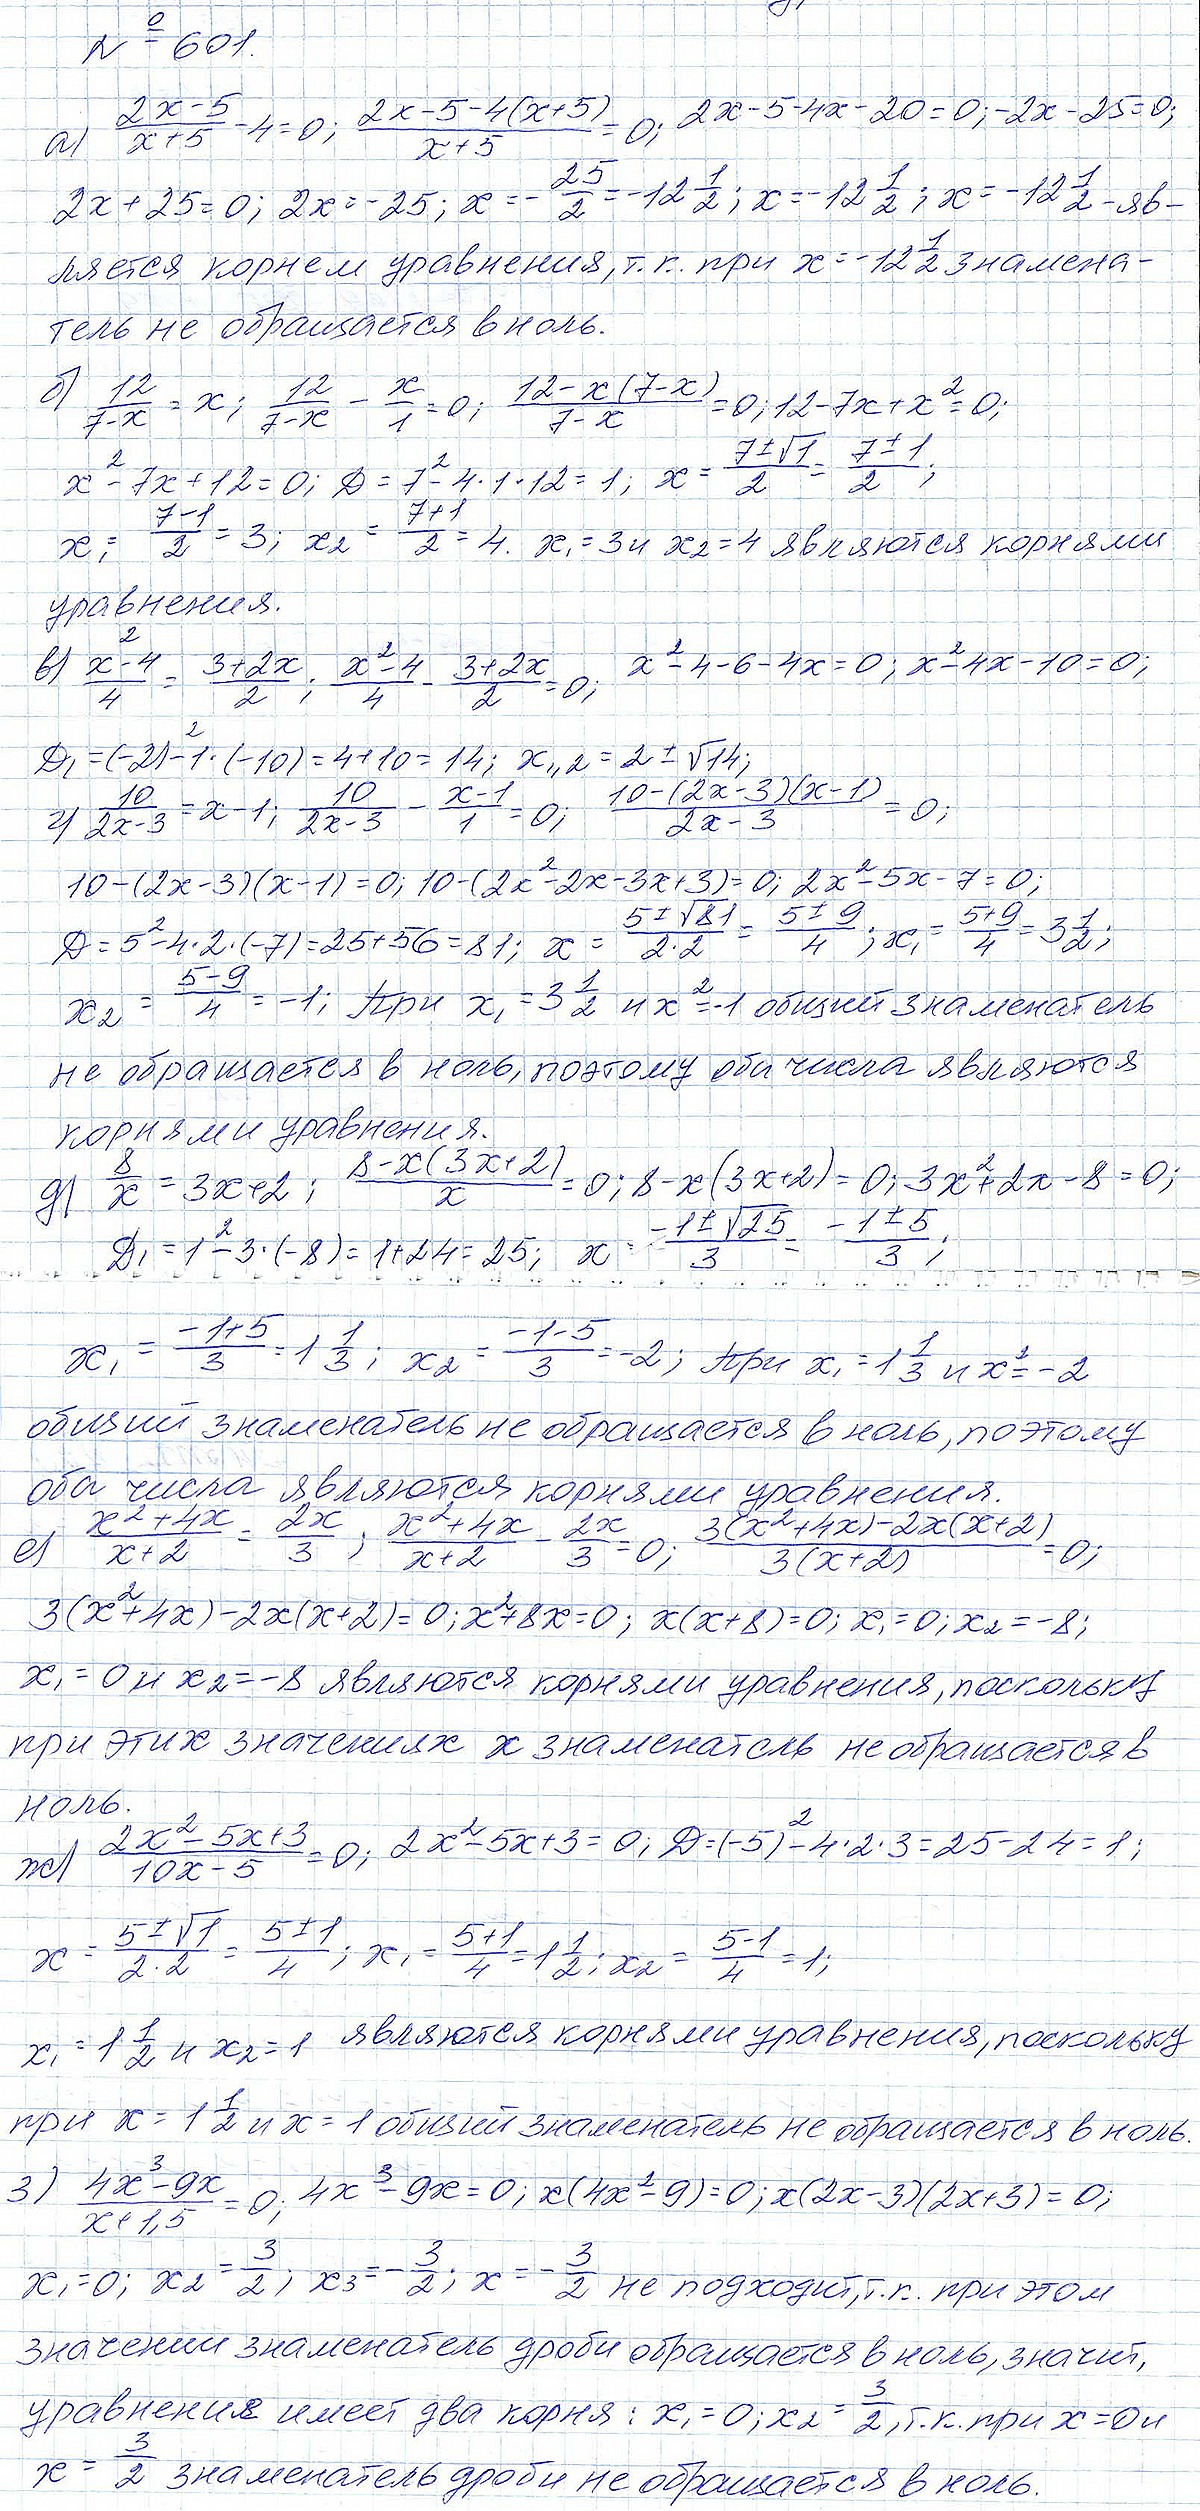 № 601.
а) (2x-5)/(x+5) - 4 = 0; (2x-5-4(x+5))/(x+5) = 0; 2x-5-4x-20=0; -2x-25=0;
2x+25=0; 2x=-25; x = -25/2 = -12 1/2; x = -12 1/2; x = -12 1/2 - яв-
ляется корнем уравнения, т.к. при x = -12 1/2 знамена-
тель не обращается в ноль.
б) 12/(7-x) = x; 12/(7-x) - x/1 = 0; (12-x(7-x))/(7-x) = 0; 12-7x+x²=0;
x²-7x+12=0; D = 7²-4·1·12=1; x = (7±√1)/2 = (7±1)/2;
x₁ = (7-1)/2 = 3; x₂ = (7+1)/2 = 4. x₁=3 и x₂=4 являются корнями
уравнения.
в) (x²-4)/4 = (3+2x)/2; (x²-4)/4 - (3+2x)/2 = 0; x²-4-6-4x=0; x²-4x-10=0;
D₁ = (-2)²-1·(-10)=4+10=14; x₁,₂ = 2±√14;
г) 10/(2x-3) = x-1; 10/(2x-3) - (x-1)/1 = 0; (10-(2x-3)(x-1))/(2x-3) = 0;
10-(2x-3)(x-1)=0; 10-(2x²-2x-3x+3)=0; 2x²-5x-7=0;
D = 5²-4·2·(-7)=25+56=81; x = (5±√81)/(2·2) = (5±9)/4; x₁ = (5+9)/4 = 3 1/2;
x₂ = (5-9)/4 = -1; При x₁ = 3 1/2 и x²=-1 общий знаменатель
не обращается в ноль, поэтому оба числа являются
корнями уравнения.
д) 8/x = 3x+2; (8-x(3x+2))/x = 0; 8-x(3x+2)=0; 3x²+2x-8=0;
D₁ = 1²-3·(-8)=1+24=25; x = (-1±√25)/3 = (-1±5)/3;
x₁ = (-1+5)/3 = 1 1/3; x₂ = (-1-5)/3 = -2; При x₁ = 1 1/3 и x²=-2
общий знаменатель не обращается в ноль, поэтому
оба числа являются корнями уравнения.
е) (x²+4x)/(x+2) = 2x/3; (x²+4x)/(x+2) - 2x/3 = 0; (3(x²+4x)-2x(x+2))/(3(x+2)) = 0;
3(x²+4x)-2x(x+2)=0; x²+8x=0; x(x+8)=0; x₁=0; x₂=-8;
x₁=0 и x₂=-8 являются корнями уравнения, поскольку
при этих значениях x знаменатель не обращается в
ноль.
ж) (2x²-5x+3)/(10x-5) = 0; 2x²-5x+3=0; D=(-5)²-4·2·3=25-24=1;
x = (5±√1)/(2·2) = (5±1)/4; x₁ = (5+1)/4 = 1 1/2; x₂ = (5-1)/4 = 1;
x₁ = 1 1/2 и x₂=1 являются корнями уравнения, поскольку
при x = 1 1/2 и x=1 общий знаменатель не обращается в ноль.
з) (4x³-9x)/(x+1,5) = 0; 4x³-9x=0; x(4x²-9)=0; x(2x-3)(2x+3)=0;
x₁=0; x₂ = 3/2; x₃ = -3/2; x = -3/2 не подходит, т.к. при этом
значении знаменатель дроби обращается в ноль, значит,
уравнение имеет два корня: x₁=0; x₂ = 3/2, т.к. при x=0 и
x = 3/2 знаменатель дроби не обращается в ноль.